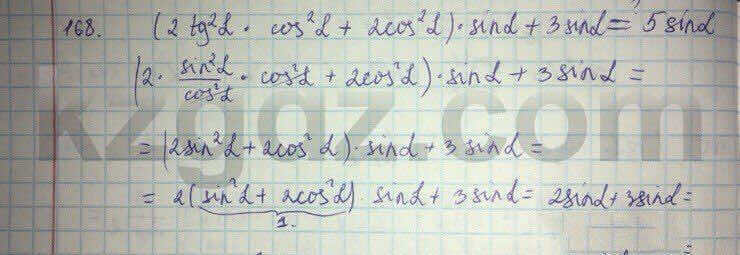 168. (2 tg²α · cos²α + 2cos²α) · sinα + 3 sinα = 5 sinα
(2 · sin²α/cos²α · cos²α + 2cos²α) · sinα + 3 sinα =
= (2sin²α + 2cos²α) · sinα + 3 sinα =
= 2(sin²α + 2cos²α) · sinα + 3 sinα = 2sinα + 3sinα =
1.
kzgdz.com